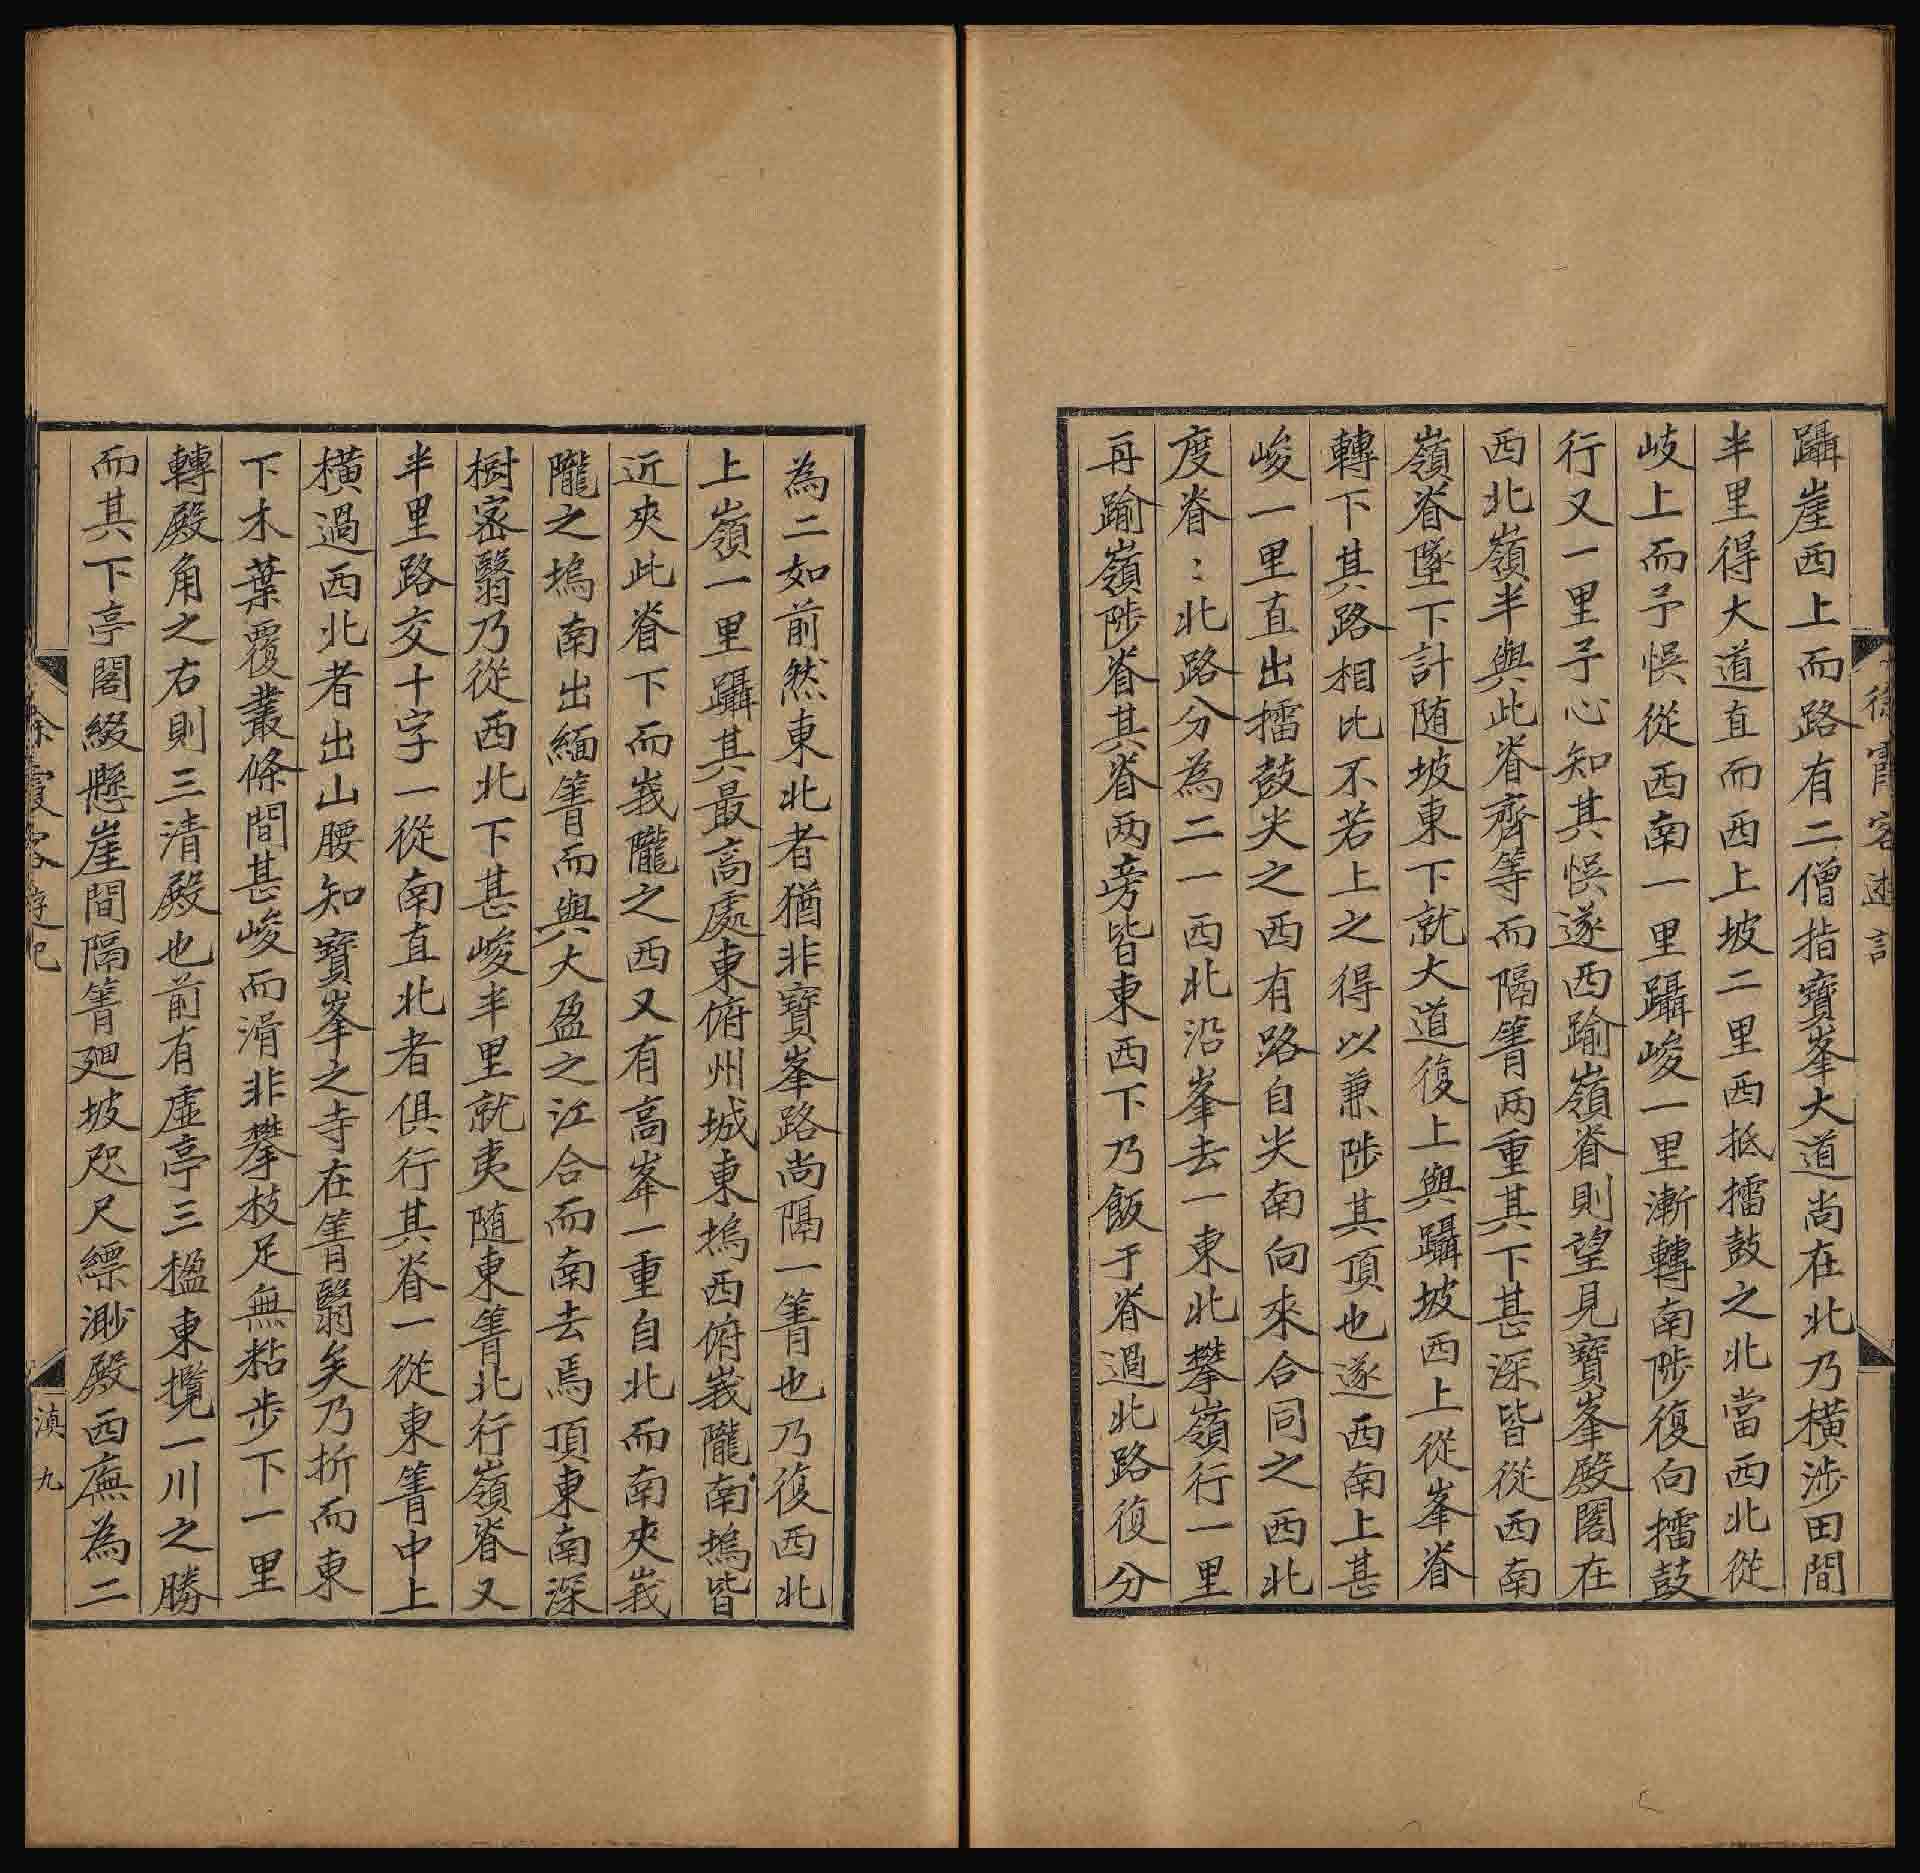 躡崖西上而路有二僧指寶峯大道尚在北乃橫涉田間
半里得大道直而西上坡二里西抵擂鼓之北當西北從
岐上而予悞從西南一里躡峻一里漸轉南陟復向擂鼓
行又一里予心知其悞遂西踰嶺脊則望見寶峯殿閣在
西北嶺半與此脊齊等而隔箐两重其下甚深皆從西南
嶺脊墜下計随坡東下就大道復上與躡坡西上從峯脊
轉下其路相比不若上之得以兼陟其頂也遂西南上甚
峻一里直出擂鼓尖之西有路自尖南向來合同之西北
度脊〻北路分為二一西北沿峯去一東北攀嶺行一里
再踰嶺陟脊其脊两旁皆東西下乃飯于脊過北路復分
徐霞客遊記
為二如前然東北者猶非寶峯路尚隔一箐也乃復西北
上嶺一里躡其最高處東俯州城東塢西俯峩隴南塢皆
近夾此脊下而峩隴之西又有高峯一重自北而南夾峩
隴之塢南出緬箐而與大盈之江合而南去焉頂東南深
樹密翳乃從西北下甚峻半里就夷随東箐北行嶺脊又
半里路交十字一從南直北者俱行其脊一從東箐中上
橫過西北者出山腰知寶峯之寺在箐翳矣乃折而東
下木葉覆叢條間甚峻而滑非攀枝足無粘步下一里
轉殿角之右則三清殿也前有虛亭三楹東攬一川之勝
而其下亭閣綴懸崖間隔箐廻坡咫尺縹渺殿西廡為二
徐霞客遊記
滇九